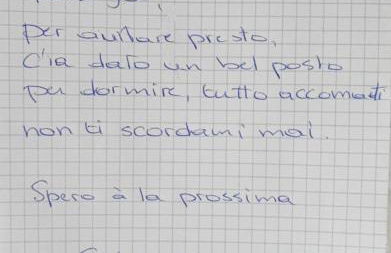 per auitare presto,
C'ia dato un bel posto
per dormire, tutto accomodti
non ti scordami mai.
Spero à la prossima